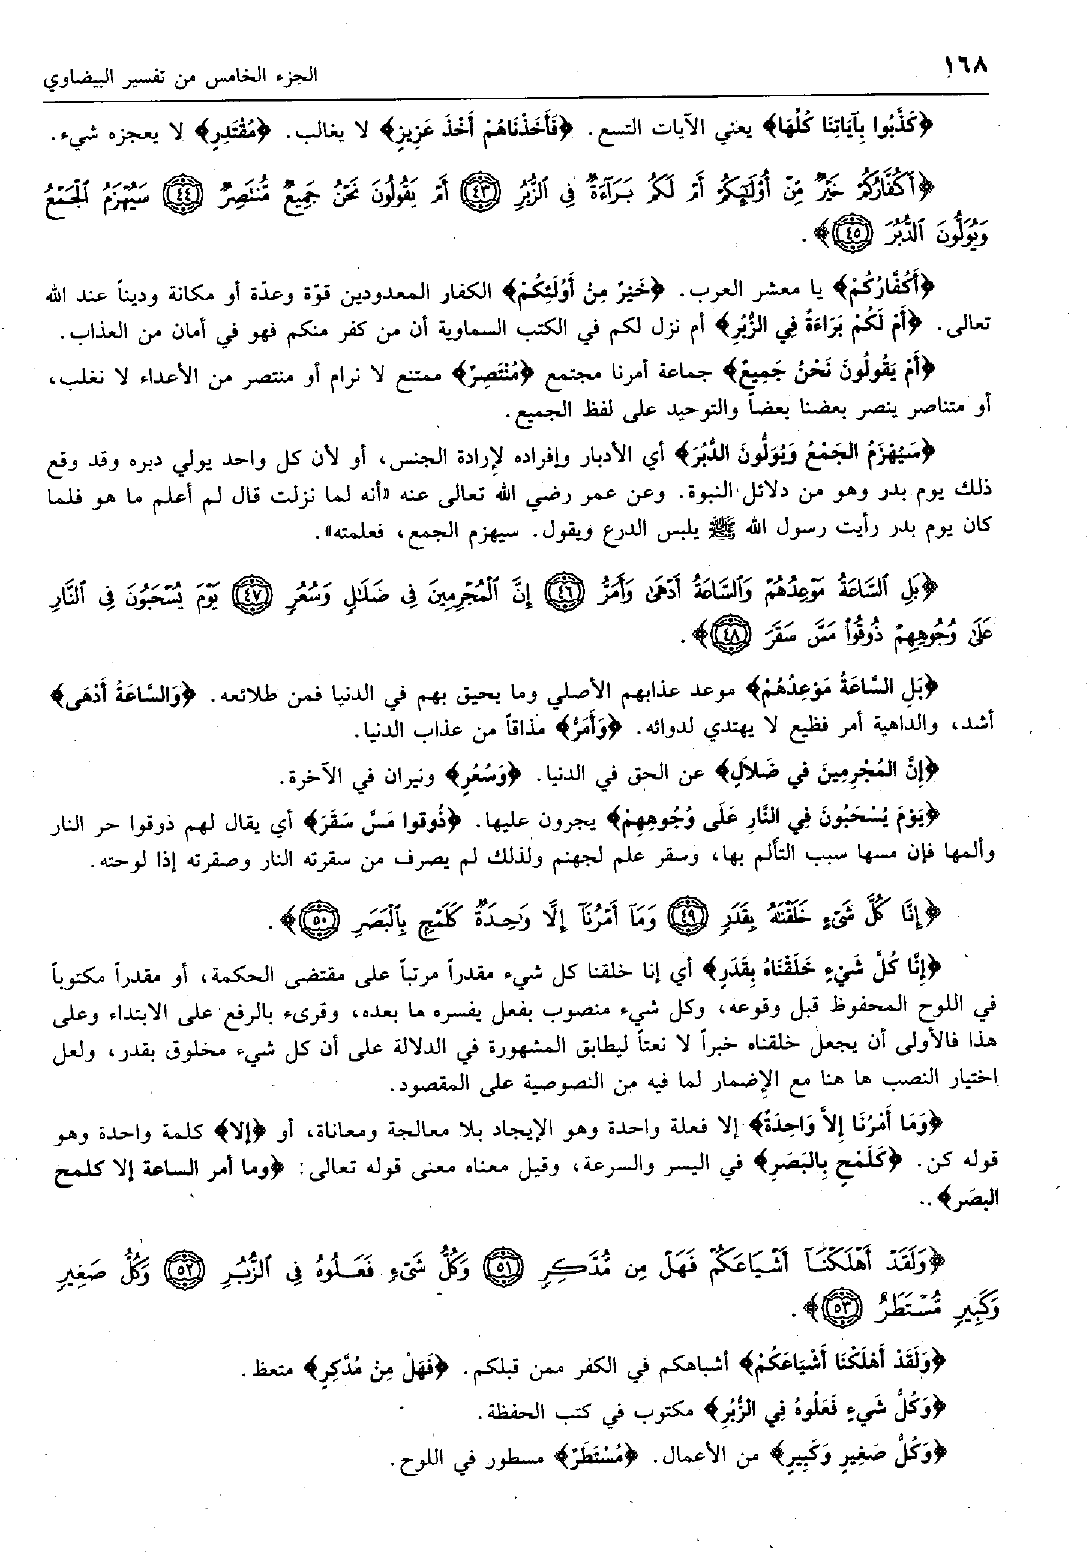 ١٦٨
الجزء الخامس من تفسير البيضاوي
﴿كَذَّبُوا بِآيَاتِنَا كُلِّهَا﴾ يعني الآيات التسع. ﴿فَأَخَذْنَاهُمْ أَخْذَ عَزِيزٍ﴾ لا يغالب. ﴿مُقْتَدِرٍ﴾ لا يعجزه شيء.
﴿أَكُفَّارُكُمْ خَيْرٌ مِّنْ أُوْلَٰٓئِكُمْ أَمْ لَكُم بَرَآءَةٌ فِي ٱلزُّبُرِ ﴿٤٣﴾ أَمْ يَقُولُونَ نَحْنُ جَمِيعٌ مُّنتَصِرٌ ﴿٤٤﴾ سَيُهْزَمُ ٱلْجَمْعُ
وَيُوَلُّونَ ٱلدُّبُرَ ﴿٤٥﴾﴾.
﴿أَكُفَّارُكُمْ﴾ يا معشر العرب. ﴿خَيْرٌ مِنْ أُوْلَئِكُمْ﴾ الكفار المعدودين قوّة وعدّة أو مكانة وديناً عند الله
تعالى. ﴿أَمْ لَكُمْ بَرَاءَةٌ فِي الزُّبُرِ﴾ أم نزل لكم في الكتب السماوية أن من كفر منكم فهو في أمان من العذاب.
﴿أَمْ يَقُولُونَ نَحْنُ جَمِيعٌ﴾ جماعة أمرنا مجتمع ﴿مُنْتَصِرٌ﴾ ممتنع لا نرام أو منتصر من الأعداء لا نغلب،
أو متناصر ينصر بعضنا بعضاً والتوحيد على لفظ الجميع.
﴿سَيُهْزَمُ الجَمْعُ وَيُوَلُّونَ الدُّبُرَ﴾ أي الأدبار وإفراده لإرادة الجنس، أو لأن كل واحد يولي دبره وقد وقع
ذلك يوم بدر وهو من دلائل النبوة. وعن عمر رضي الله تعالى عنه «أنه لما نزلت قال لم أعلم ما هو فلما
كان يوم بدر رأيت رسول الله ﷺ يلبس الدرع ويقول. سيهزم الجمع، فعلمته».
﴿بَلِ ٱلسَّاعَةُ مَوْعِدُهُمْ وَٱلسَّاعَةُ أَدْهَىٰ وَأَمَرُّ ﴿٤٦﴾ إِنَّ ٱلْمُجْرِمِينَ فِي ضَلَٰلٍ وَسُعُرٍ ﴿٤٧﴾ يَوْمَ يُسْحَبُونَ فِي ٱلنَّارِ
عَلَىٰ وُجُوهِهِمْ ذُوقُواْ مَسَّ سَقَرَ ﴿٤٨﴾﴾.
﴿بَلِ السَّاعَةُ مَوْعِدُهُمْ﴾ موعد عذابهم الأصلي وما يحيق بهم في الدنيا فمن طلائعه. ﴿وَالسَّاعَةُ أَدْهَى﴾
أشد، والداهية أمر فظيع لا يهتدي لدوائه. ﴿وَأَمَرُّ﴾ مذاقاً من عذاب الدنيا.
﴿إِنَّ المُجْرِمِينَ في ضَلاَلٍ﴾ عن الحق في الدنيا. ﴿وَسُعُرٍ﴾ ونيران في الآخرة.
﴿يَوْمَ يُسْحَبُونَ فِي النَّارِ عَلَى وُجُوهِهِمْ﴾ يجرون عليها. ﴿ذُوقُوا مَسَّ سَقَرَ﴾ أي يقال لهم ذوقوا حر النار
وألمها فإن مسها سبب التألم بها، وسقر علم لجهنم ولذلك لم يصرف من سقرته النار وصقرته إذا لوحته.
﴿إِنَّا كُلَّ شَيْءٍ خَلَقْنَٰهُ بِقَدَرٍ ﴿٤٩﴾ وَمَآ أَمْرُنَآ إِلَّا وَٰحِدَةٌ كَلَمْحٍ بِٱلْبَصَرِ ﴿٥٠﴾﴾.
﴿إِنَّا كُلَّ شَيْءٍ خَلَقْنَاهُ بِقَدَرٍ﴾ أي إنا خلقنا كل شيء مقدراً مرتباً على مقتضى الحكمة، أو مقدراً مكتوباً
في اللوح المحفوظ قبل وقوعه، وكل شيء منصوب بفعل يفسره ما بعده، وقرىء بالرفع على الابتداء وعلى
هذا فالأولى أن يجعل خلقناه خبراً لا نعتاً ليطابق المشهورة في الدلالة على أن كل شيء مخلوق بقدر، ولعل
اختيار النصب ها هنا مع الإضمار لما فيه من النصوصية على المقصود.
﴿وَمَا أَمْرُنَا إِلاَّ وَاحِدَةٌ﴾ إلا فعلة واحدة وهو الإيجاد بلا معالجة ومعاناة، أو ﴿إلا﴾ كلمة واحدة وهو
قوله كن. ﴿كَلَمْحٍ بِالبَصَرِ﴾ في اليسر والسرعة، وقيل معناه معنى قوله تعالى: ﴿وما أمر الساعة إلا كلمح
البصر﴾..
﴿وَلَقَدْ أَهْلَكْنَآ أَشْيَاعَكُمْ فَهَلْ مِن مُّدَّكِرٍ ﴿٥١﴾ وَكُلُّ شَيْءٍ فَعَلُوهُ فِي ٱلزُّبُرِ ﴿٥٢﴾ وَكُلُّ صَغِيرٍ
وَكَبِيرٍ مُّسْتَطَرٌ ﴿٥٣﴾﴾.
﴿وَلَقَدْ أَهْلَكْنَا أَشْيَاعَكُمْ﴾ أشباهكم في الكفر ممن قبلكم. ﴿فَهَلْ مِنْ مُدَّكِرٍ﴾ متعظ.
﴿وَكُلُّ شَيءٍ فَعَلُوهُ فِي الزُّبُرِ﴾ مكتوب في كتب الحفظة.
﴿وَكُلُّ صَغِيرٍ وَكَبِيرٍ﴾ من الأعمال. ﴿مُسْتَطَرٌ﴾ مسطور في اللوح.